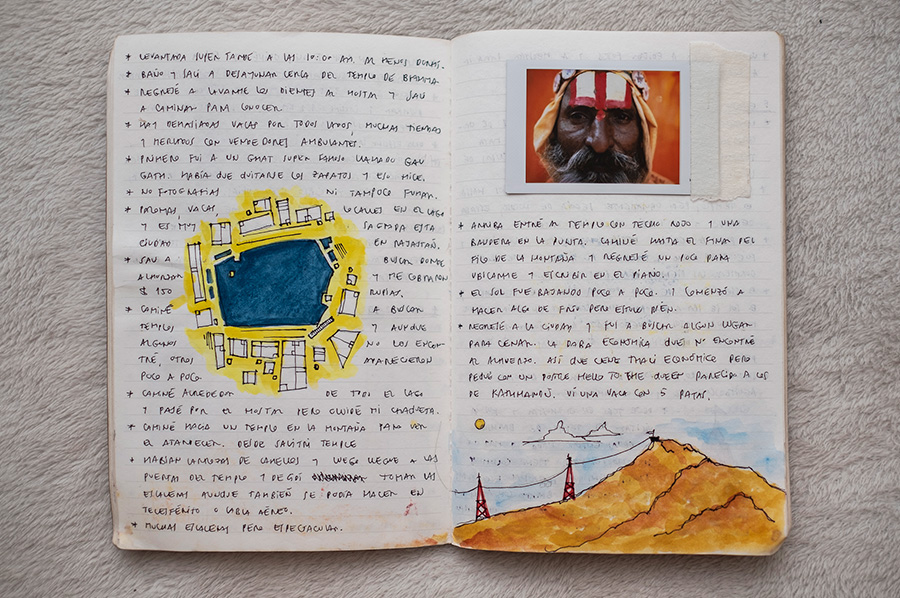 * LEVANTADA SUPER TARDE A LAS 10:00 AM. AL MENOS DORMÍ.
* BAÑO Y SALÍ A DESAYUNAR CERCA DEL TEMPLO DE BRAHMA.
* REGRESÉ A LAVARME LOS DIENTES AL HOSTAL Y SALÍ
A CAMINAR PARA CONOCER.
* HAY DEMASIADAS VACAS POR TODOS LADOS, MUCHAS TIENDAS
Y MERCADOS CON VENDEDORES AMBULANTES.
* PRIMERO FUI A UN GHAT SUPER FAMOSO LLAMADO GAU
GATH. HABÍA QUE QUITARSE LOS ZAPATOS Y ESO HICE.
* NO FOTOGRAFIAS NI TAMPOCO FUMAR.
* PALOMAS, VACAS, LOCALES EN EL LAGO
Y ES MUY SAGRADA ESTA
CIUDAD EN RAJASTAN.
* SALÍ A BUSCAR DONDE
ALMORZAR Y ME COBRARON
$ 150 RUPIAS.
* CAMINÉ A BUSCAR
TEMPLOS Y AUNQUE
ALGUNOS NO LOS ENCON
TRÉ, OTROS APARECIERON
POCO A POCO.
* CAMINÉ ALREDEDOR DE TODO EL LAGO
Y PASÉ POR EL HOSTAL PERO OLVIDÉ MI CHAQUETA.
* CAMINÉ HACIA UN TEMPLO EN LA MONTAÑA PARA VER
EL ATARDECER. DESDE SAVITRI TEMPLE
* HABÍAN CARROZAS DE CAMELLOS Y LUEGO LLEGUÉ A LAS
PUERTAS DEL TEMPLO Y DECIDÍ TOMAR LAS
ESCALERAS AUNQUE TAMBIÉN SE PODIA HACER EN
TELEFÉRICO O CABLE AÉREO.
* MUCHAS ESCALERAS PERO ESPECTACULAR.
* ARRIBA ENTRÉ AL TEMPLO CON TECHO ROJO Y UNA
BANDERA EN LA PUNTA. CAMINÉ HASTA EL FINAL DEL
FILO DE LA MONTAÑA Y REGRESÉ UN POCO PARA
UBICARME Y ESCRIBIR EN EL DIARIO.
* EL SOL FUE BAJANDO POCO A POCO. YA COMENZÓ A
HACER ALGO DE FRIO PERO ESTUVO BIEN.
* REGRESÉ A LA CIUDAD Y FUI A BUSCAR ALGUN LUGAR
PARA CENAR. LA DABA ECONÓMICA QUE NO ENCONTRÉ
AL ALMUERZO. ASÍ QUE CENÉ THALI ECONÓMICO PERO
PEQUÉ CON UN POSTRE HELLO TO THE QUEEN PARECIDO A LOS
DE KATHMANDÚ. VÍ UNA VACA CON 5 PATAS.